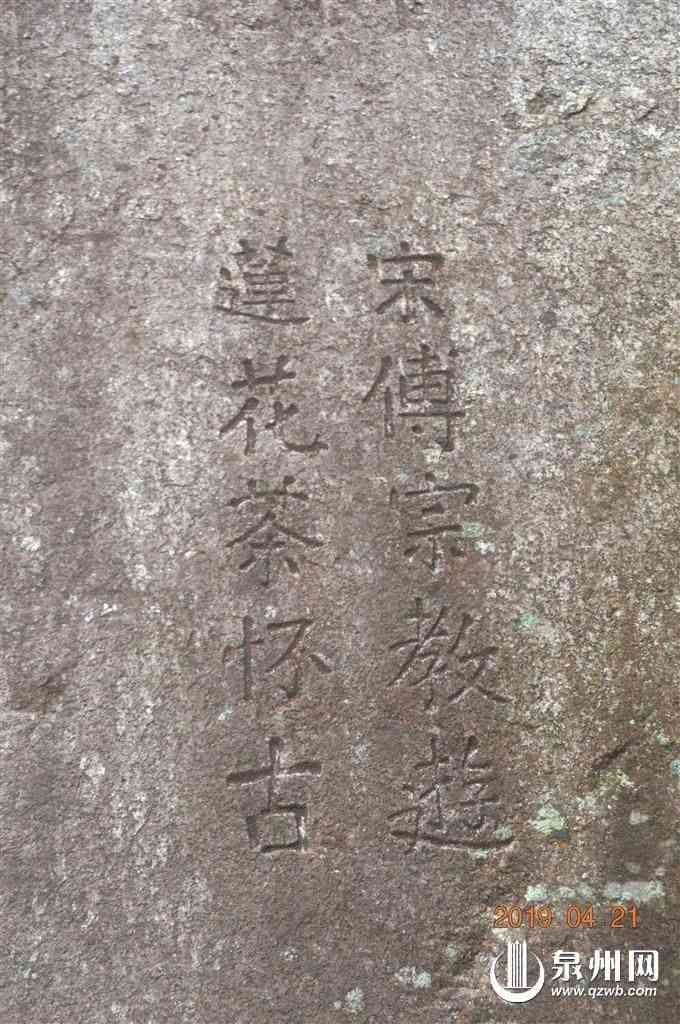 宋傅宗教遊
蓮花茶怀古
2019 04 21
泉州网
www.qzwb.com